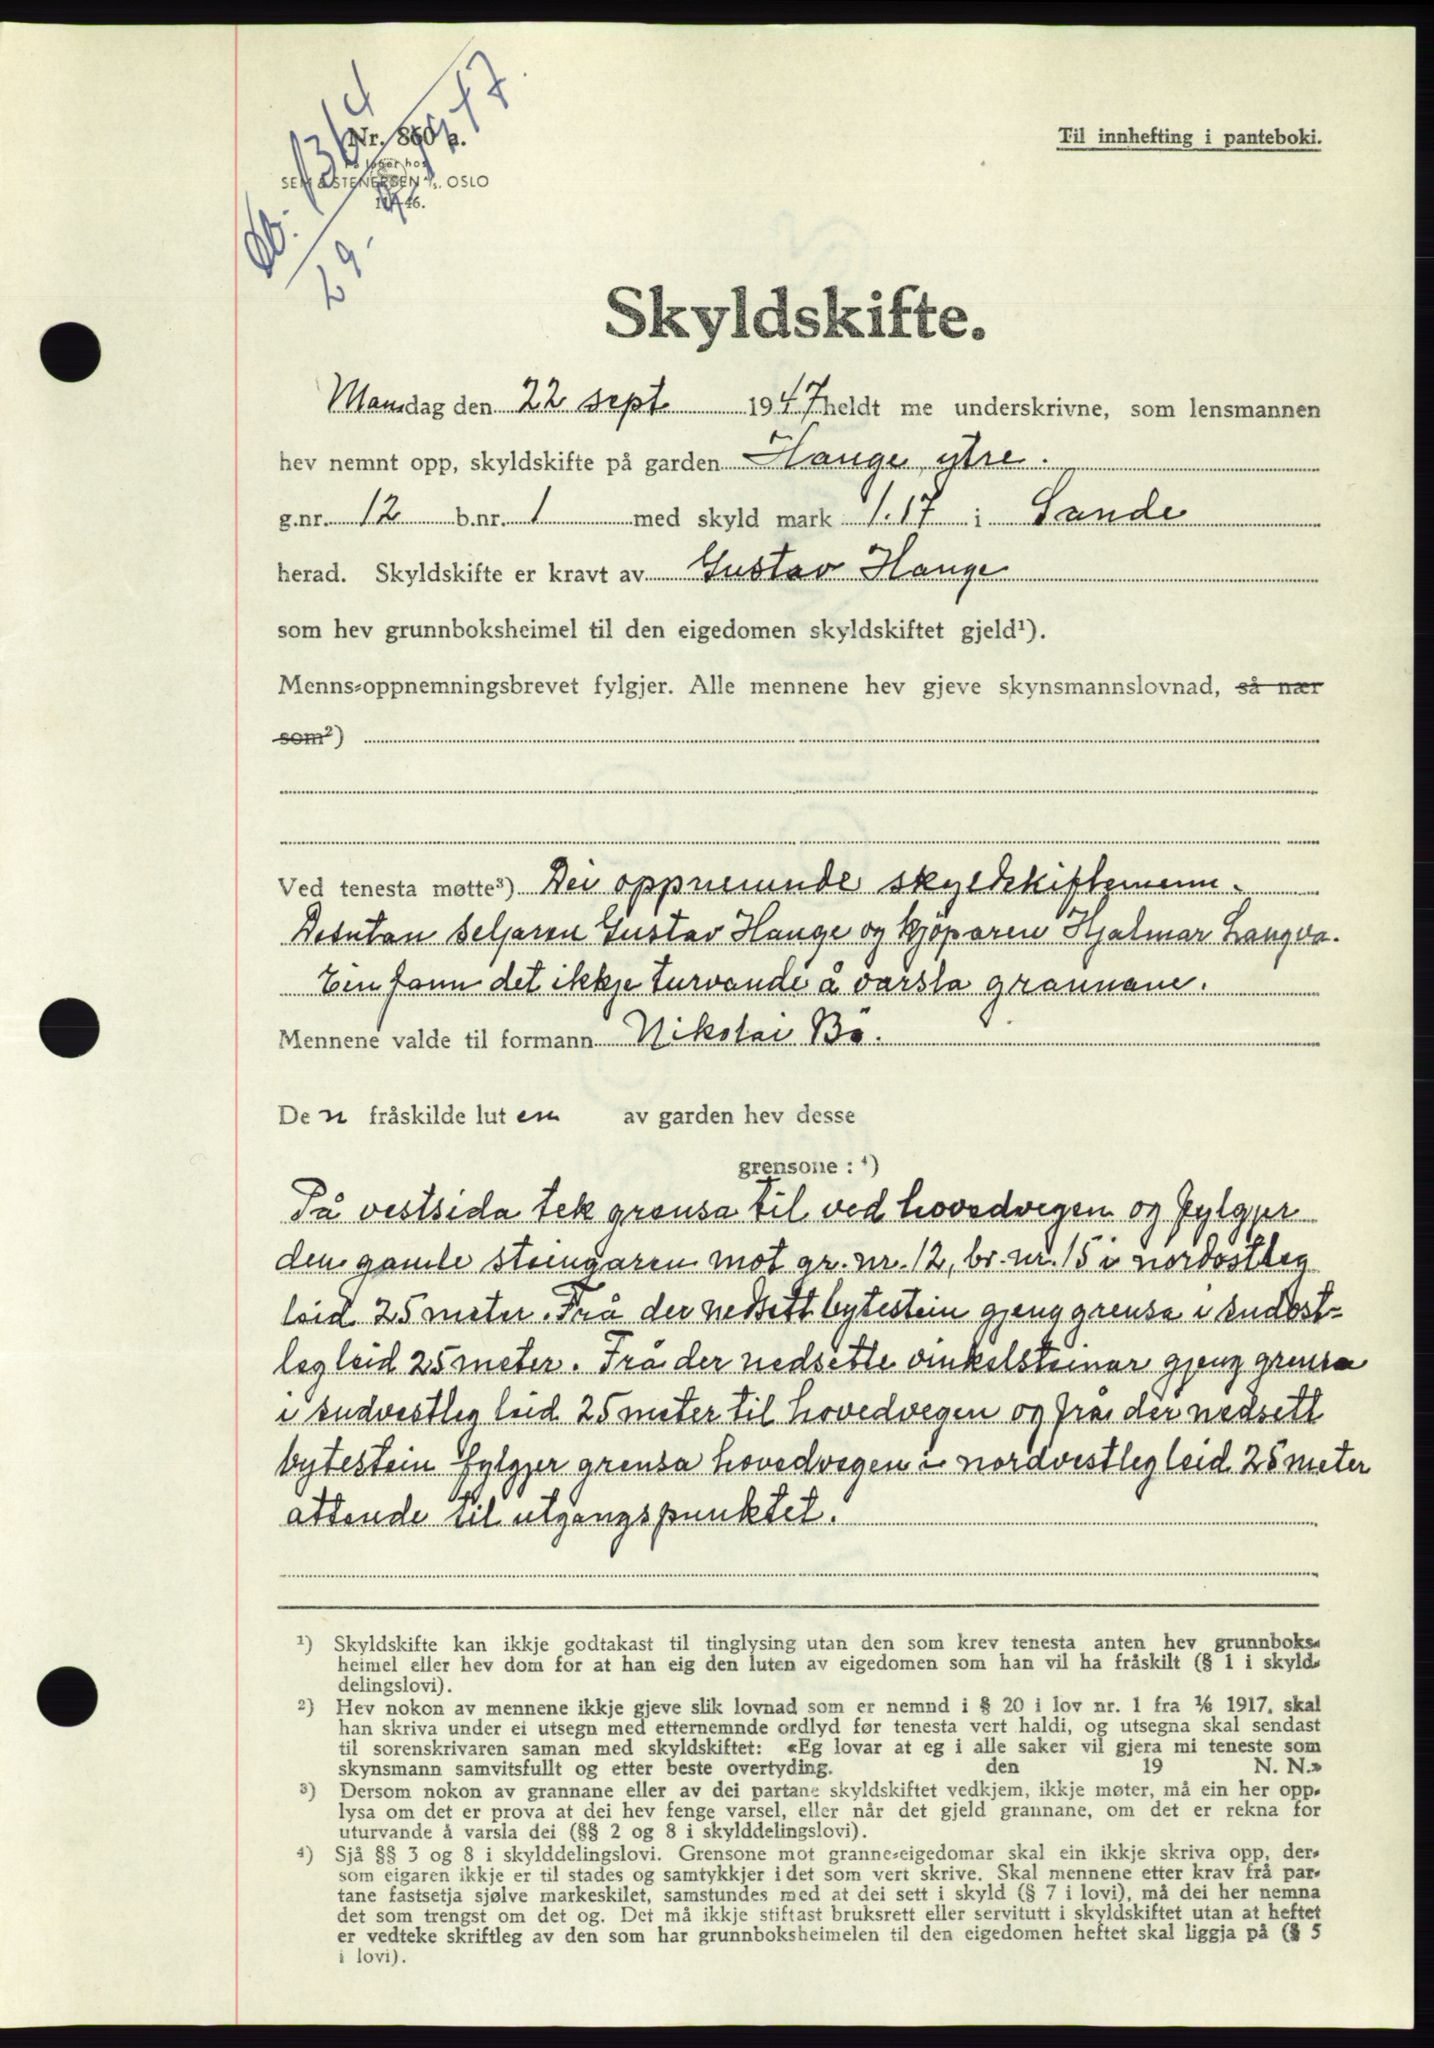 Db. 1364
29-9-1947.
Nr. 860 a.
På lager hos
SEM & STENERSEN A/S, OSLO
11-46.
Til innhefting i panteboki.
Skyldskifte.
Mandag den 22 sept 1947 heldt me underskrivne, som lensmannen
hev nemnt opp, skyldskifte på garden Hauge, ytre.
g.nr. 12 b.nr. 1 med skyld mark 1.17 i Sande
herad. Skyldskifte er kravt av Gustav Hauge
som hev grunnboksheimel til den eigedomen skyldskiftet gjeld¹).
Menns-oppnemningsbrevet fylgjer. Alle mennene hev gjeve skynsmannslovnad, så nær
som²)
Ved tenesta møtte³) Dei oppnemnde skyldskiftemenn.
Desutan seljaren Gustav Hauge og kjöparen Hjalmar Langva.
Ein fann det ikkje turvande å varsla grannane.
Mennene valde til formann Nikolai Bö.
De n fråskilde lut en av garden hev desse
grensone : ⁴)
På vestsida tek grensa til ved hovedvegen og fylgjer
den gamle steingaren mot gr. nr. 12, br. nr. 15 i nordostleg
leid 25 meter. Frå der nedsett bytestein gjeng grensa i sudost-
leg leid 25 meter. Frå der nedsette vinkelsteinar gjeng grensa
i sudvestleg leid 25 meter til hovedvegen og frå der nedsett
bytestein fylgjer grensa hovedvegen i nordvestleg leid 25 meter
attende til utgangspunktet.
¹) Skyldskifte kan ikkje godtakast til tinglysing utan den som krev tenesta anten hev grunnboks-
heimel eller hev dom for at han eig den luten av eigedomen som han vil ha fråskilt (§ 1 i skyld-
delingslovi).
²) Hev nokon av mennene ikkje gjeve slik lovnad som er nemnd i § 20 i lov nr. 1 fra ¹/₆ 1917, skal
han skriva under ei utsegn med etternemnde ordlyd før tenesta vert haldi, og utsegna skal sendast
til sorenskrivaren saman med skyldskiftet: «Eg lovar at eg i alle saker vil gjera mi teneste som
skynsmann samvitsfullt og etter beste overtyding. den 19 N. N.»
³) Dersom nokon av grannane eller av dei partane skyldskiftet vedkjem, ikkje møter, må ein her opp-
lysa om det er prova at dei hev fenge varsel, eller når det gjeld grannane, om det er rekna for
uturvande å varsla dei (§§ 2 og 8 i skylddelingslovi).
⁴) Sjå §§ 3 og 8 i skylddelingslovi. Grensone mot granne-eigedomar skal ein ikkje skriva opp, der-
som eigaren ikkje er til stades og samtykkjer i det som vert skrive. Skal mennene etter krav frå par-
tane fastsetja sjølve markeskilet, samstundes med at dei sett i skyld (§ 7 i lovi), må dei her nemna
det som trengst om det og. Det må ikkje stiftast bruksrett eller servitutt i skyldskiftet utan at heftet
er vedteke skriftleg av den som har grunnboksheimelen til den eigedomen heftet skal liggja på (§ 5
i lovi).